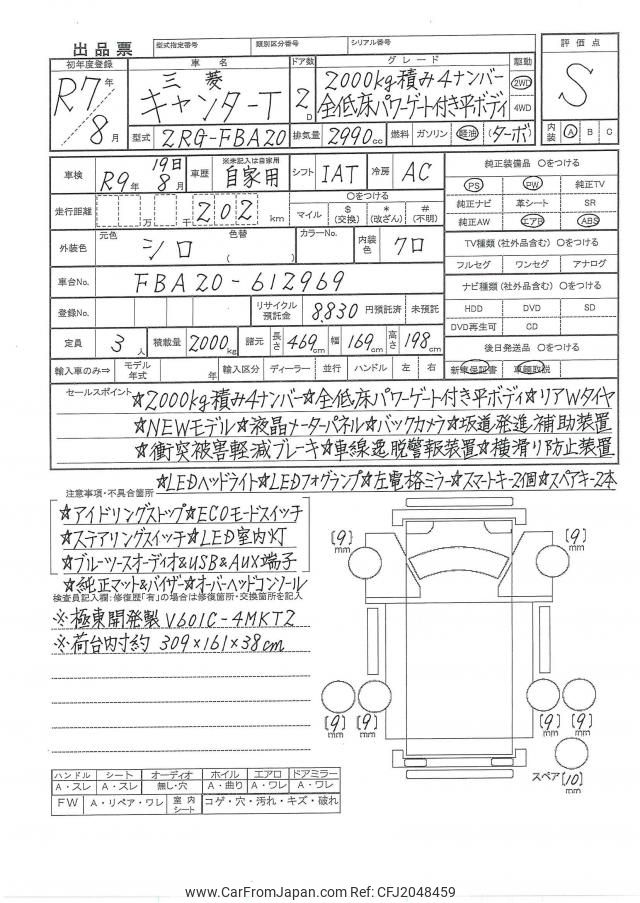 出品票 型式指定番号 類別区分番号 シリアル番号
初年度登録 車名 ドア数 グレード 駆動 評価点
R7年 8月 三菱 キャンターT 2D 2000kg積み4ナンバー 全低床パワーゲート付き平ボディ 2WD 4WD S
型式 2RG-FBA20 排気量 2990cc 燃料 ガソリン 軽油 (ターボ) 内装 A B C
車検 R9年 19日 8月 車歴 ※未記入は自家用 自家用 シフト IAT 冷房 AC 純正装備品 ○をつける
PS PW 純正TV
走行距離 万 千 202 km ○をつける マイル $(交換) *(改ざん) #(不明) 純正ナビ 革シート SR
純正AW エアB ABS
外装色 元色 シロ 色替 ( ) カラーNo. 内装色 クロ TV種類 (社外品含む) ○をつける
フルセグ ワンセグ アナログ
車台No. FBA20-612969 ナビ種類 (社外品含む) ○をつける
登録No. リサイクル預託金 8,830 円預託済 未預託 HDD DVD SD
DVD再生可 CD
定員 3人 積載量 2000kg 諸元 長さ 469cm 幅 169cm 高さ 198cm 後日発送品 ○をつける
輸入車のみ⇒ モデル年式 年 輸入区分 ディーラー 並行 ハンドル 左 右 新車保証書 車輌取説
セールスポイント ☆2000kg積み4ナンバー☆全低床パワーゲート付き平ボディ☆リアWタイヤ
☆NEWモデル☆液晶メーターパネル☆バックカメラ☆坂道発進補助装置
☆衝突被害軽減ブレーキ☆車線逸脱警報装置☆横滑り防止装置
☆LEDヘッドライト☆LEDフォグランプ☆左電格ミラー☆スマートキー2個☆スペアキー2本
注意事項・不具合箇所
☆アイドリングストップ☆ECOモードスイッチ
☆ステアリングスイッチ☆LED室内灯
☆ブルーツースオーディオ&USB&AUX端子
☆純正マット&バイザー☆オーバーヘッドコンソール
検査員記入欄:修復歴「有」の場合は修復箇所・交換箇所を記入
※極東開発製 V601C-4MKT2
※荷台内寸約 309×161×38cm
[9]mm [9]mm
[9]mm [9]mm [9]mm [9]mm
スペア[10]mm
ハンドル シート オーディオ ホイル エアロ ドアミラー
A・スレ A・スレ 無し・穴 A・曲り A・ワレ A・ワレ
FW A・リペア・ワレ 室内シート コゲ・穴・汚れ・キズ・破れ
www.CarFromJapan.com Ref: CFJ2048459